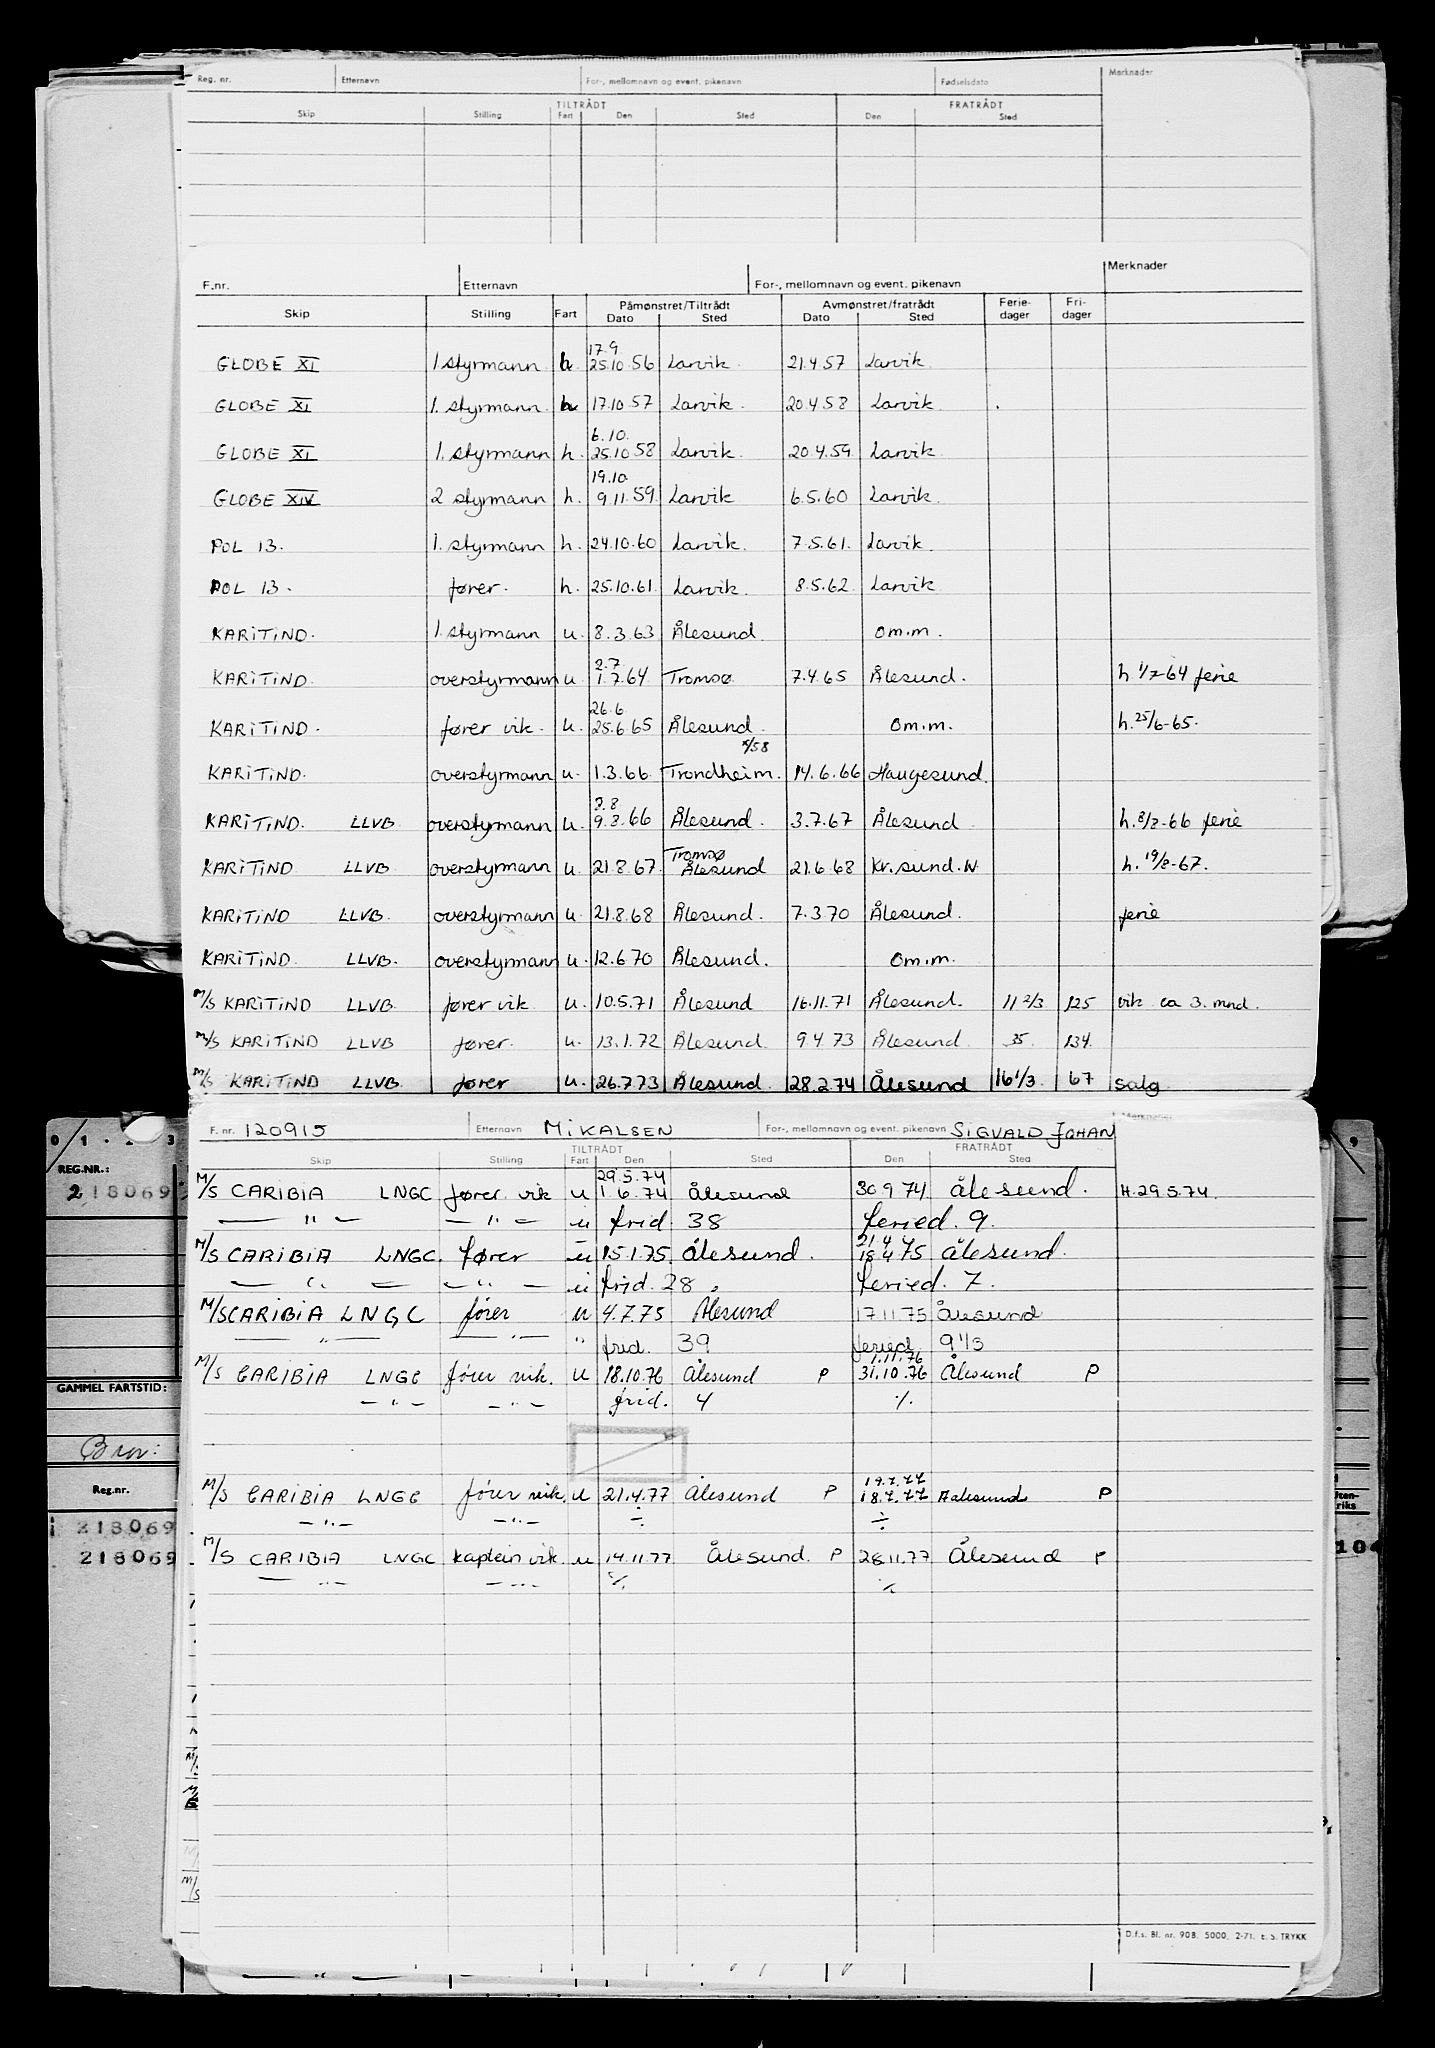 Reg. nr. Etternavn For-, mellomnavn og event. pikenavn Fødselsdato Merknader
TILTRÅDT FRATRÅDT
Skip Stilling Fart Den Sted Den Sted
F.nr. Etternavn For-, mellomnavn og event. pikenavn Merknader
Påmønstret/Tiltrådt Avmønstret/fratrådt Ferie- Fri-
Skip Stilling Fart Dato Sted Dato Sted dager dager
17.9
GLOBE XI 1 styrmann h. 25.10.56 Larvik. 21.4.57 Larvik.
GLOBE XI 1. styrmann. h 17.10.57 Larvik. 20.4.58 Larvik
6.10.
GLOBE XI 1. styrmann h. 25.10.58 Larvik. 20.4.59. Larvik.
19.10.
GLOBE XIV 2 styrmann h. 9.11.59. Larvik 6.5.60 Larvik.
POL 13. 1. styrmann h. 24.10.60 Larvik. 7.5.61. Larvik.
POL 13. fører. h. 25.10.61 Larvik. 8.5.62. Larvik
KARITIND. 1. styrmann u. 8.3.63 Ålesund. om.m.
2.7
KARITIND. overstyrmann u. 1.7.64 Tromsø 7.4.65 Ålesund. h. 1/7-64 ferie
26.6.
KARITIND. fører vik. u. 25.6.65 Ålesund. om.m. h. 25/6-65.
KARITIND. overstyrmann u. 1.3.66. Trondheim. 14.6.66 Haugesund.
KARITIND. LLVB overstyrmann u. 9.8.66 Ålesund. 3.7.67 Ålesund h. 8/8-66 ferie
Tromsø
KARITIND LLVB. overstyrmann u. 21.8.67. Ålesund 21.6.68 Kr.sund.N h. 19/8-67.
KARITIND LLVB. overstyrmann u. 21.8.68 Ålesund. 7.3.70 Ålesund. ferie
KARITIND. LLVB. overstyrmann u. 12.6.70 Ålesund. om.m.
M/S KARITIND LLVB. fører vik u. 10.5.71 Ålesund 16.11.71 Ålesund. 11 2/3 125 vik ca 3. mnd.
M/S KARITIND LLVB fører. u. 13.1.72 Ålesund. 9.4.73 Ålesund. 35. 134.
M/S KARITIND LLVB. fører u. 26.7.73 Ålesund. 28.2.74 Ålesund 16 1/3. 67 salg
F. nr. 120915 Etternavn MIKALSEN For-, mellomnavn og event. pikenavn SIGVALD JOHAN Merknader
TILTRÅDT FRATRÅDT
Skip Stilling Fart Den Sted Den Sted
29.5.74
M/S CARIBIA LNGC fører vik u 1.6.74 Ålesund 30.9.74 Ålesund. H.29.5.74.
— " — — " — u frid. 38 feried. 9.
21.4
M/S CARIBIA LNGC. fører u 15.1.75. Ålesund. 18.4.75 Ålesund.
— " — — " — u frid. 28 feried. 7.
M/S CARIBIA LNGC fører u 4.7.75 Ålesund 17.11.75 Ålesund
— " — — " — " frid. 39 feried 9 1/3
1.11.76
M/S CARIBIA LNGC fører vik. u 18.10.76 Ålesund P 31.10.76 Ålesund P
— " — — " — frid. 4 %
19.7.77
M/S CARIBIA LNGC fører vik. u 21.4.77 Ålesund P 18.7.77 Aalesund P
— " — — " — ÷ ÷
M/S CARIBIA LNGC kaptein vik. u 14.11.77 Ålesund. P 28.11.77 Ålesund P
— " — — " — % %
D.f.s. Bl. nr. 90B. 5000, 2-71. E. S. TRYKK
0 1 2 3
REG.NR.:
218069
GAMMEL FARTSTID:
Reg.nr.
218069
218069
9
104